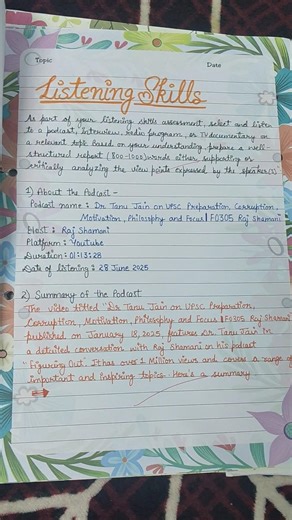 Topic Date
Listening Skills
As part of your listening skills assessment, select and listen
to a podcast, interview, radio program, or TV documentary on
a relevant topic. Based on your understanding, prepare a well-
structured report (800-1000) words either supporting or
critically analyzing the view points expressed by the speaker(s)
1) About the Podcast -
Podcast name : Dr. Tanu Jain on UPSC Preparation, Corruption,
Motivation, Philosophy and Focus | FO305 Raj Shamani
Host : Raj Shamani
Platform : Youtube
Duration : 01:13:28
Date of listening : 28 June 2025
2) Summary of the Podcast
The video titled "Dr. Tanu Jain on UPSC Preparation,
Corruption, Motivation, Philosophy and Focus | FO305 Raj Shamani
published on January 18, 2025, features Dr. Tanu Jain in
a detailed conversation with Raj Shamani on his podcast
"Figuring Out". It has over 1 Million views and covers a range of
important and inspiring topics. Here's a summary